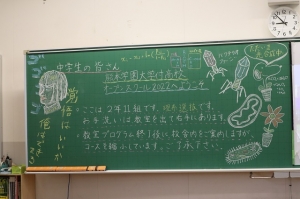 中学生の皆さん
熊本学園大学付属高校
オープンスクール2022へようこそ
覚悟はいいか
俺はできてる
・ここは2年11組です。理系選抜です。
・お手洗いは教室を出て右手にあります。
・教室プログラム終了後に校舎内をご案内しますが、
コースを縮小しています。ご了承下さい。